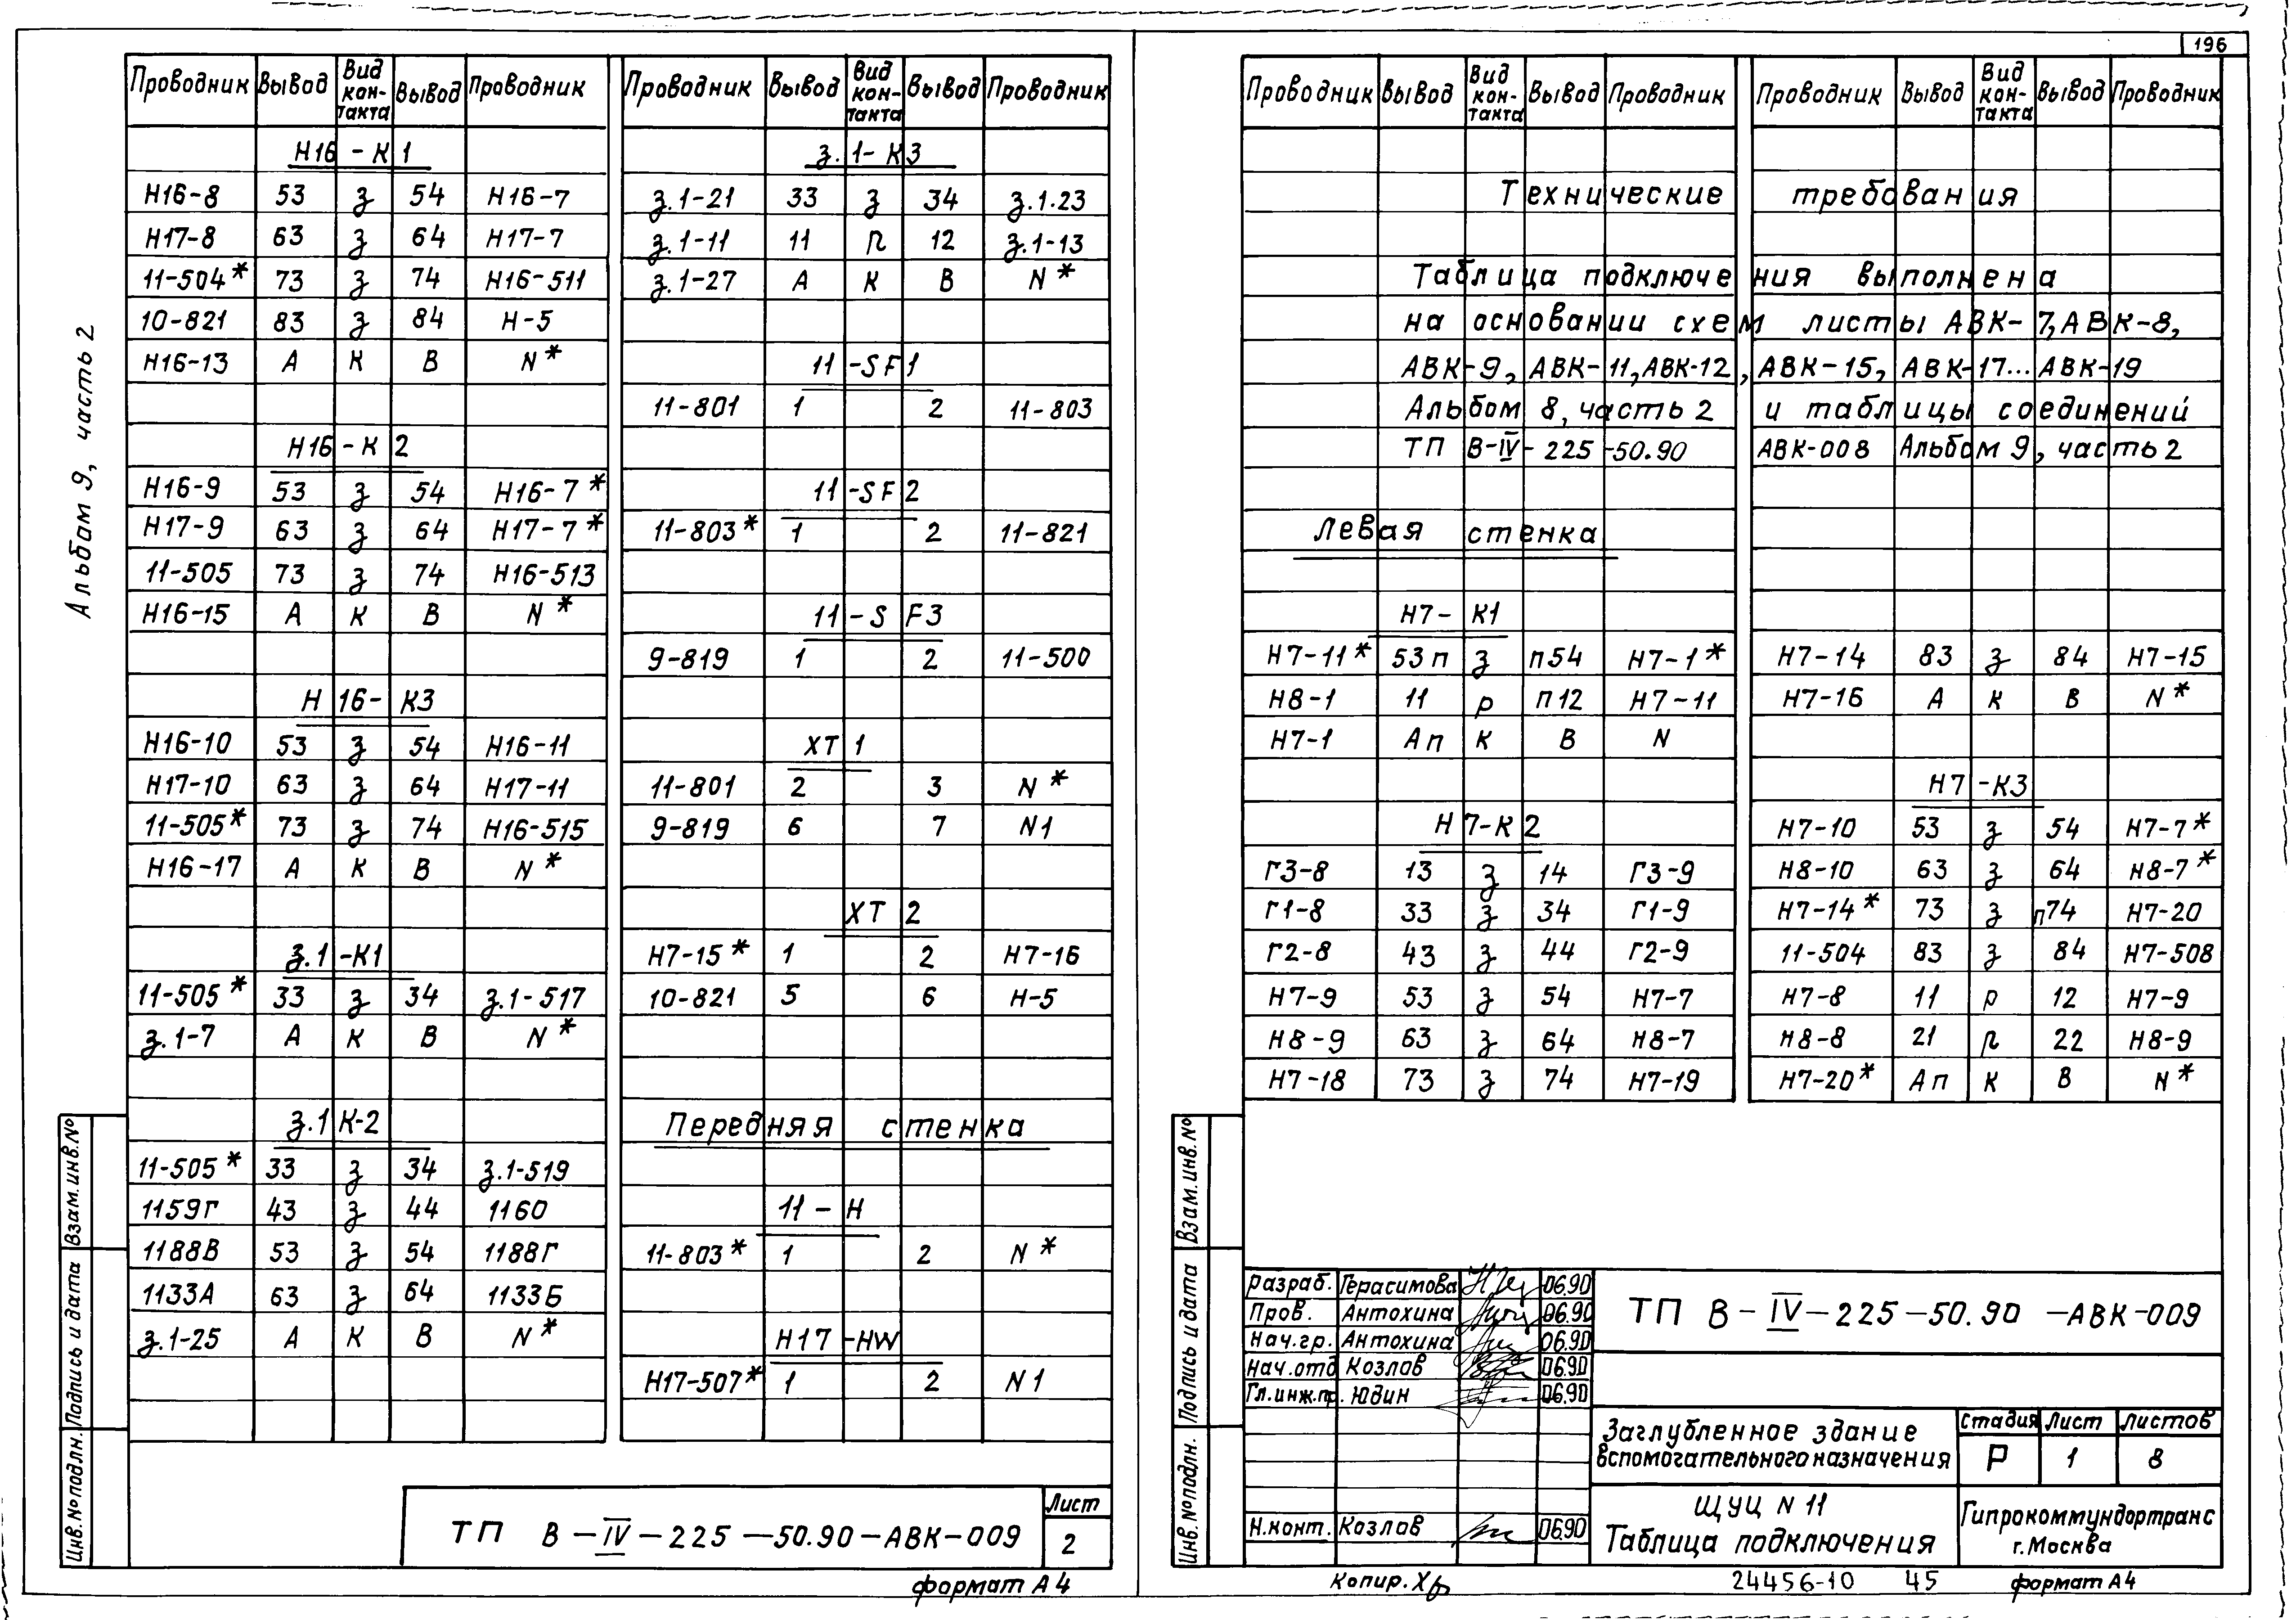 196
Альбом 9, часть 2
Проводник Вывод Вид кон-такта Вывод Проводник
Н16-К1
Н16-8 53 з 54 Н16-7
Н17-8 63 з 64 Н17-7
11-504* 73 з 74 Н16-511
10-821 83 з 84 Н-5
Н16-13 А К В N*
Н16-К2
Н16-9 53 з 54 Н16-7*
Н17-9 63 з 64 Н17-7*
11-505 73 з 74 Н16-513
Н16-15 А К В N*
Н16-К3
Н16-10 53 з 54 Н16-11
Н17-10 63 з 64 Н17-11
11-505* 73 з 74 Н16-515
Н16-17 А К В N*
з.1-К1
11-505* 33 з 34 з.1-517
з.1-7 А К В N*
з.1К-2
11-505* 33 з 34 з.1-519
1159Г 43 з 44 1160
1188В 53 з 54 1188Г
1133А 63 з 64 1133Б
з.1-25 А К В N*
Проводник Вывод Вид кон-такта Вывод Проводник
з.1-К3
з.1-21 33 з 34 з.1.23
з.1-11 11 р 12 з.1-13
з.1-27 А К В N*
11-SF1
11-801 1 2 11-803
11-SF2
11-803* 1 2 11-821
11-SF3
9-819 1 2 11-500
ХТ1
11-801 2 3 N*
9-819 6 7 N1
ХТ2
Н7-15* 1 2 Н7-16
10-821 5 6 Н-5
Передняя стенка
11-Н
11-803* 1 2 N*
Н17-HW
Н17-507* 1 2 N1
Взам. инв. №
Подпись и дата
Инв. № подлн.
ТП В-IV-225-50.90-АВК-009
Лист
2
формат А4
Проводник Вывод Вид кон-такта Вывод Проводник
Проводник Вывод Вид кон-такта Вывод Проводник
Технические требования
Таблица подключения выполнена
на основании схем листы АВК-7, АВК-8,
АВК-9, АВК-11, АВК-12, АВК-15, АВК-17...АВК-19
Альбом 8, часть 2 и таблицы соединений
ТП В-IV-225-50.90 АВК-008 Альбом 9, часть 2
Левая стенка
Н7-К1
Н7-11* 53п з п54 Н7-1*
Н8-1 11 р п12 Н7-11
Н7-1 Ап К В N
Н7-К2
Г3-8 13 з 14 Г3-9
Г1-8 33 з 34 Г1-9
Г2-8 43 з 44 Г2-9
Н7-9 53 з 54 Н7-7
Н8-9 63 з 64 Н8-7
Н7-18 73 з 74 Н7-19
Н7-14 83 з 84 Н7-15
Н7-16 А К В N*
Н7-К3
Н7-10 53 з 54 Н7-7*
Н8-10 63 з 64 Н8-7*
Н7-14* 73 з п74 Н7-20
11-504 83 з 84 Н7-508
Н7-8 11 р 12 Н7-9
Н8-8 21 р 22 Н8-9
Н7-20* Ап К В N*
Взам. инв. №
Подпись и дата
Инв. № подлн.
Разраб. Герасимова 06.90
Пров. Антохина 06.90
Нач.гр. Антохина 06.90
Нач.отд Козлов 06.90
Гл.инж.пр. Юдин 06.90
Н.конт. Козлов 06.90
ТП В-IV-225-50.90-АВК-009
Заглубленное здание
вспомогательного назначения
Стадия Лист Листов
Р 1 8
ЩУЦ N 11
Таблица подключения
Гипрокоммундортранс
г. Москва
Копир.
24456-10 45
формат А4